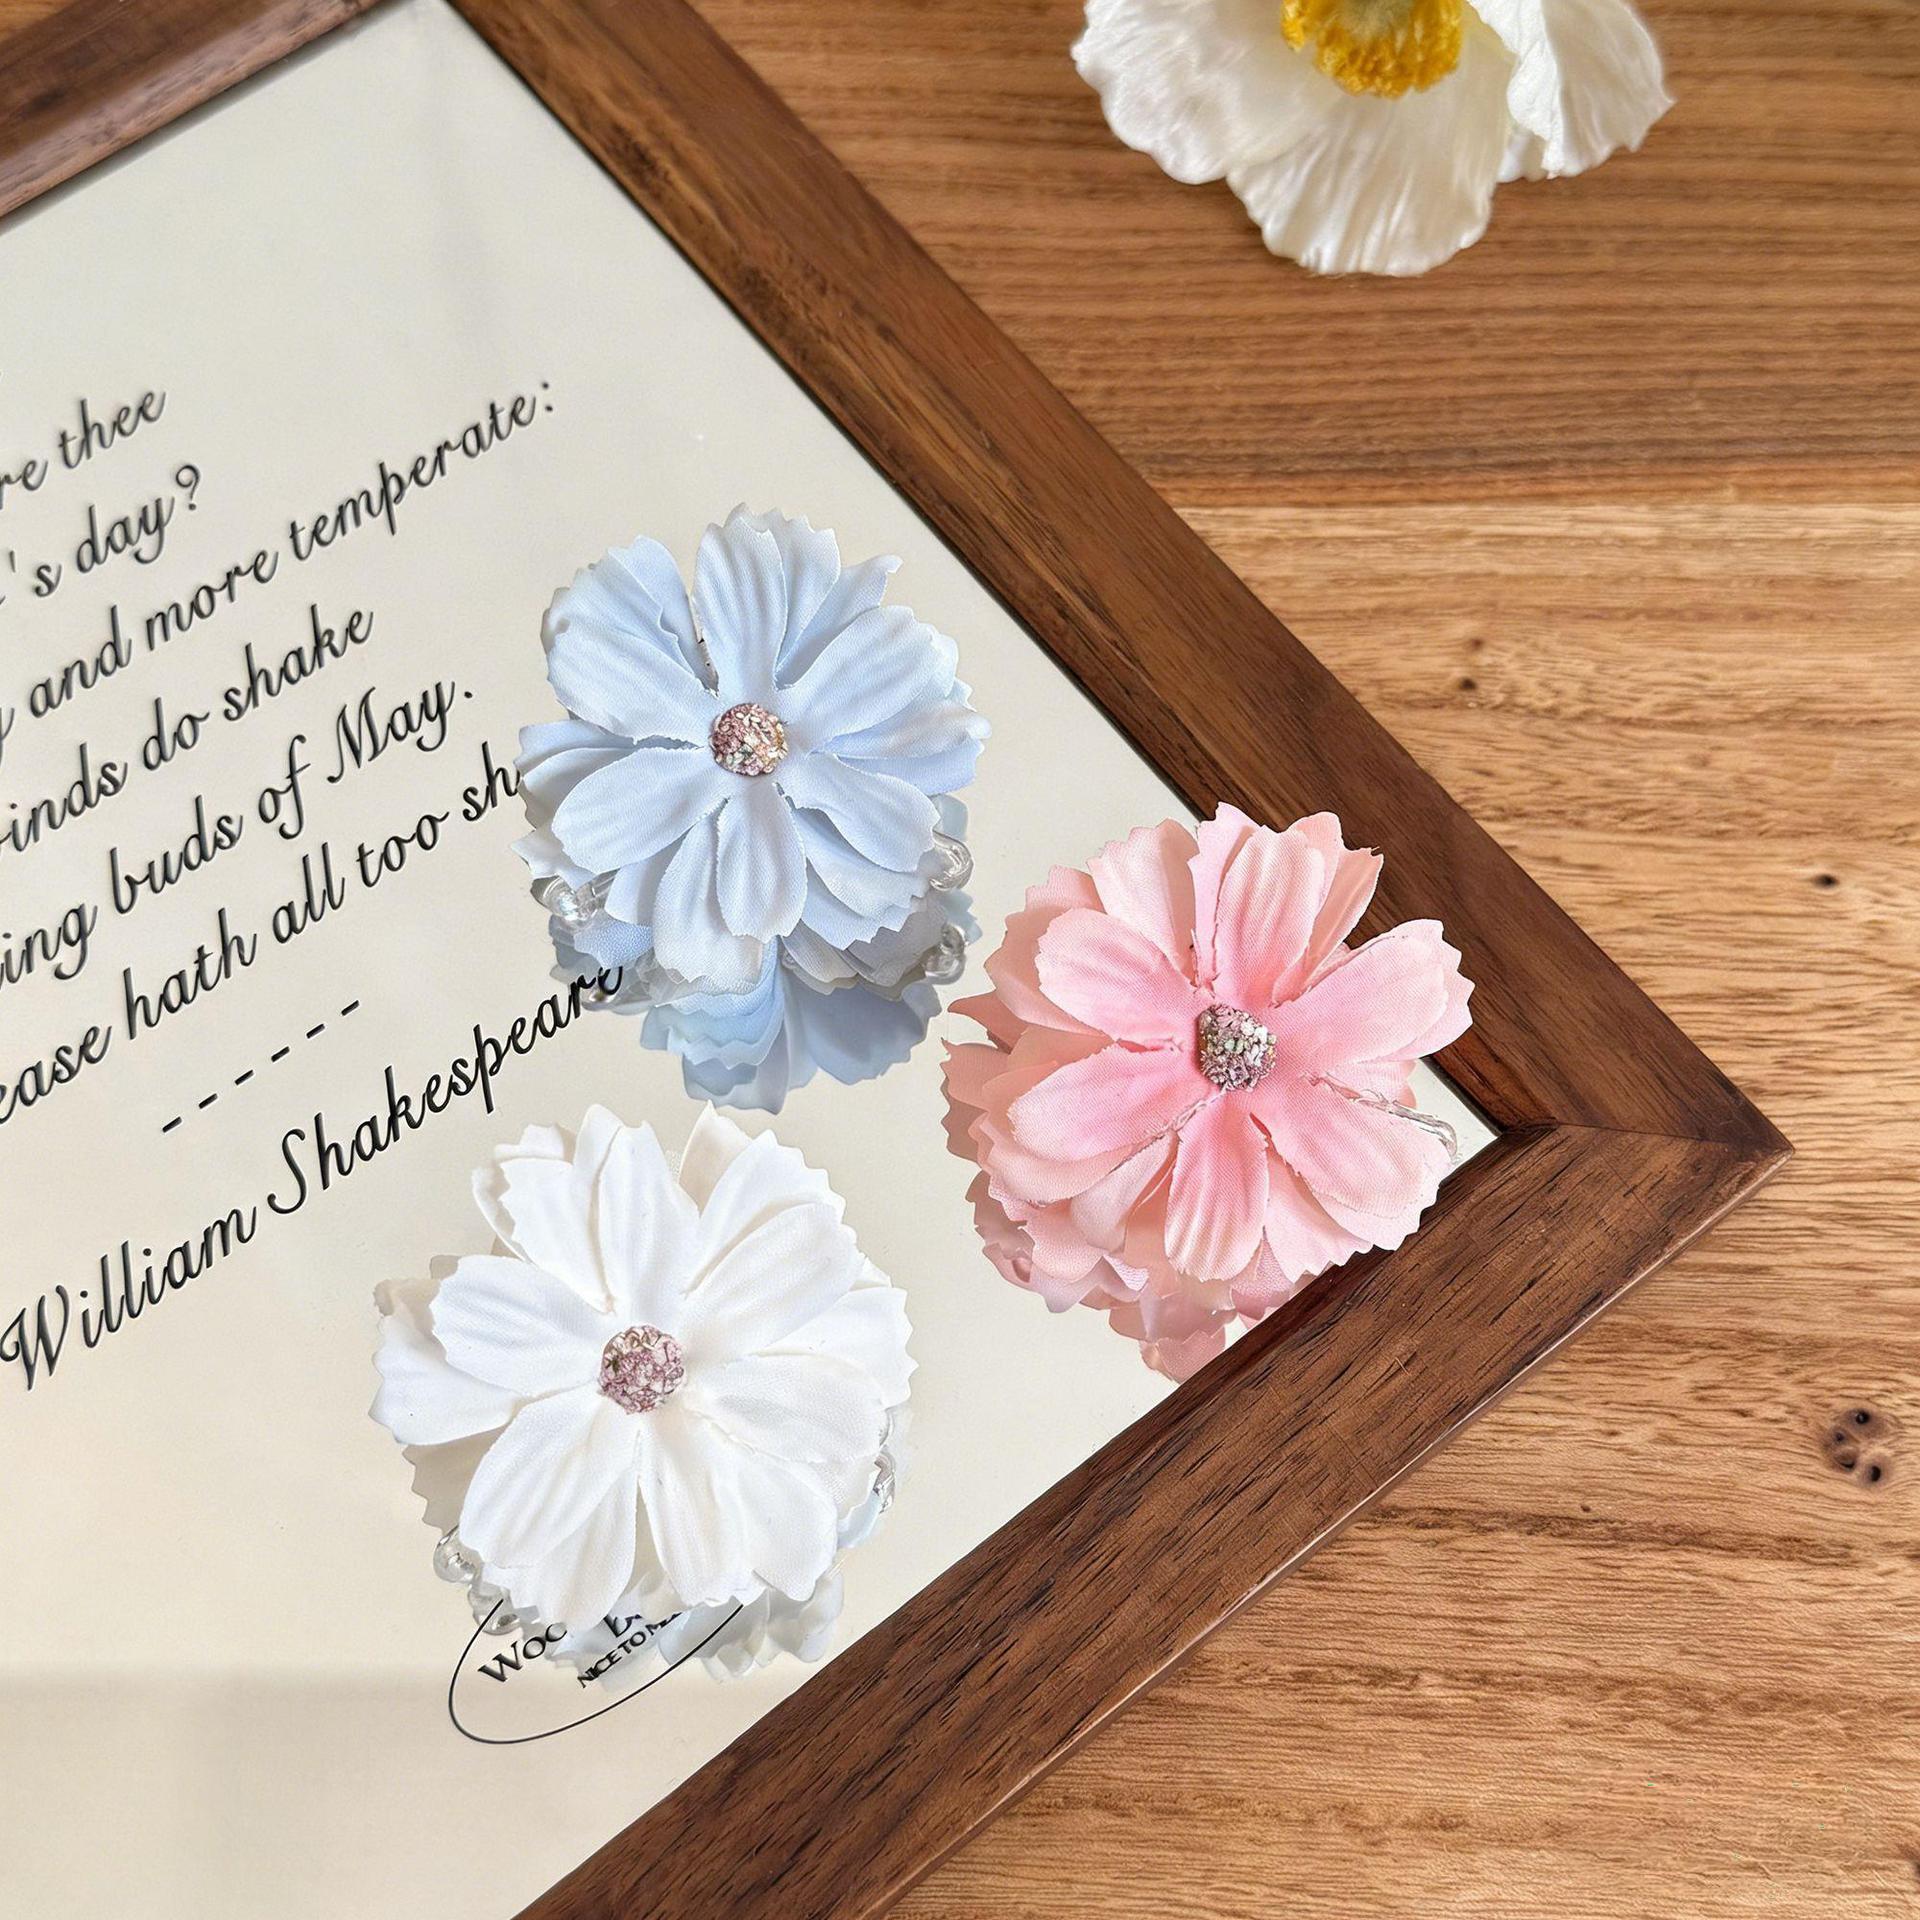 re thee
's day?
and more temperate:
inds do shake
ing buds of May.
ease hath all too sh
------
William Shakespeare
Woo
NICE TO